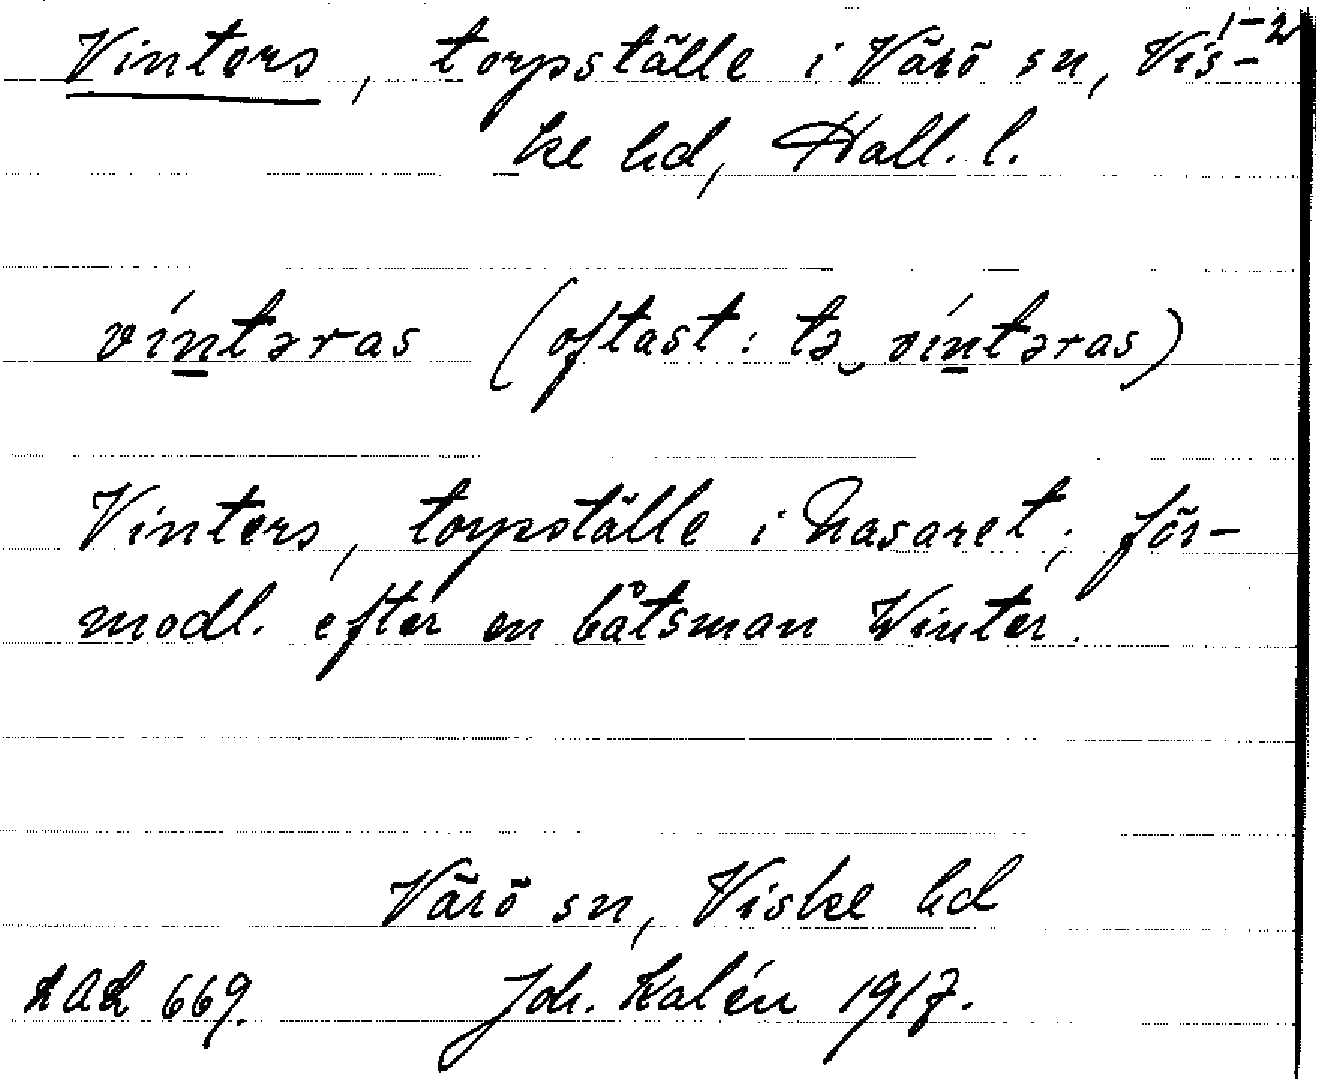 1-2
Vinters, torpställe i Värö sn, Vis-
ke hd, Hall. l.
víntəras (oftast: tə‿víntəras)
Vinters, torpställe i Nasaret; för-
modl. efter en båtsman Winter.
Värö sn, Viske hd
LAL 669. Joh. Kalén 1917.